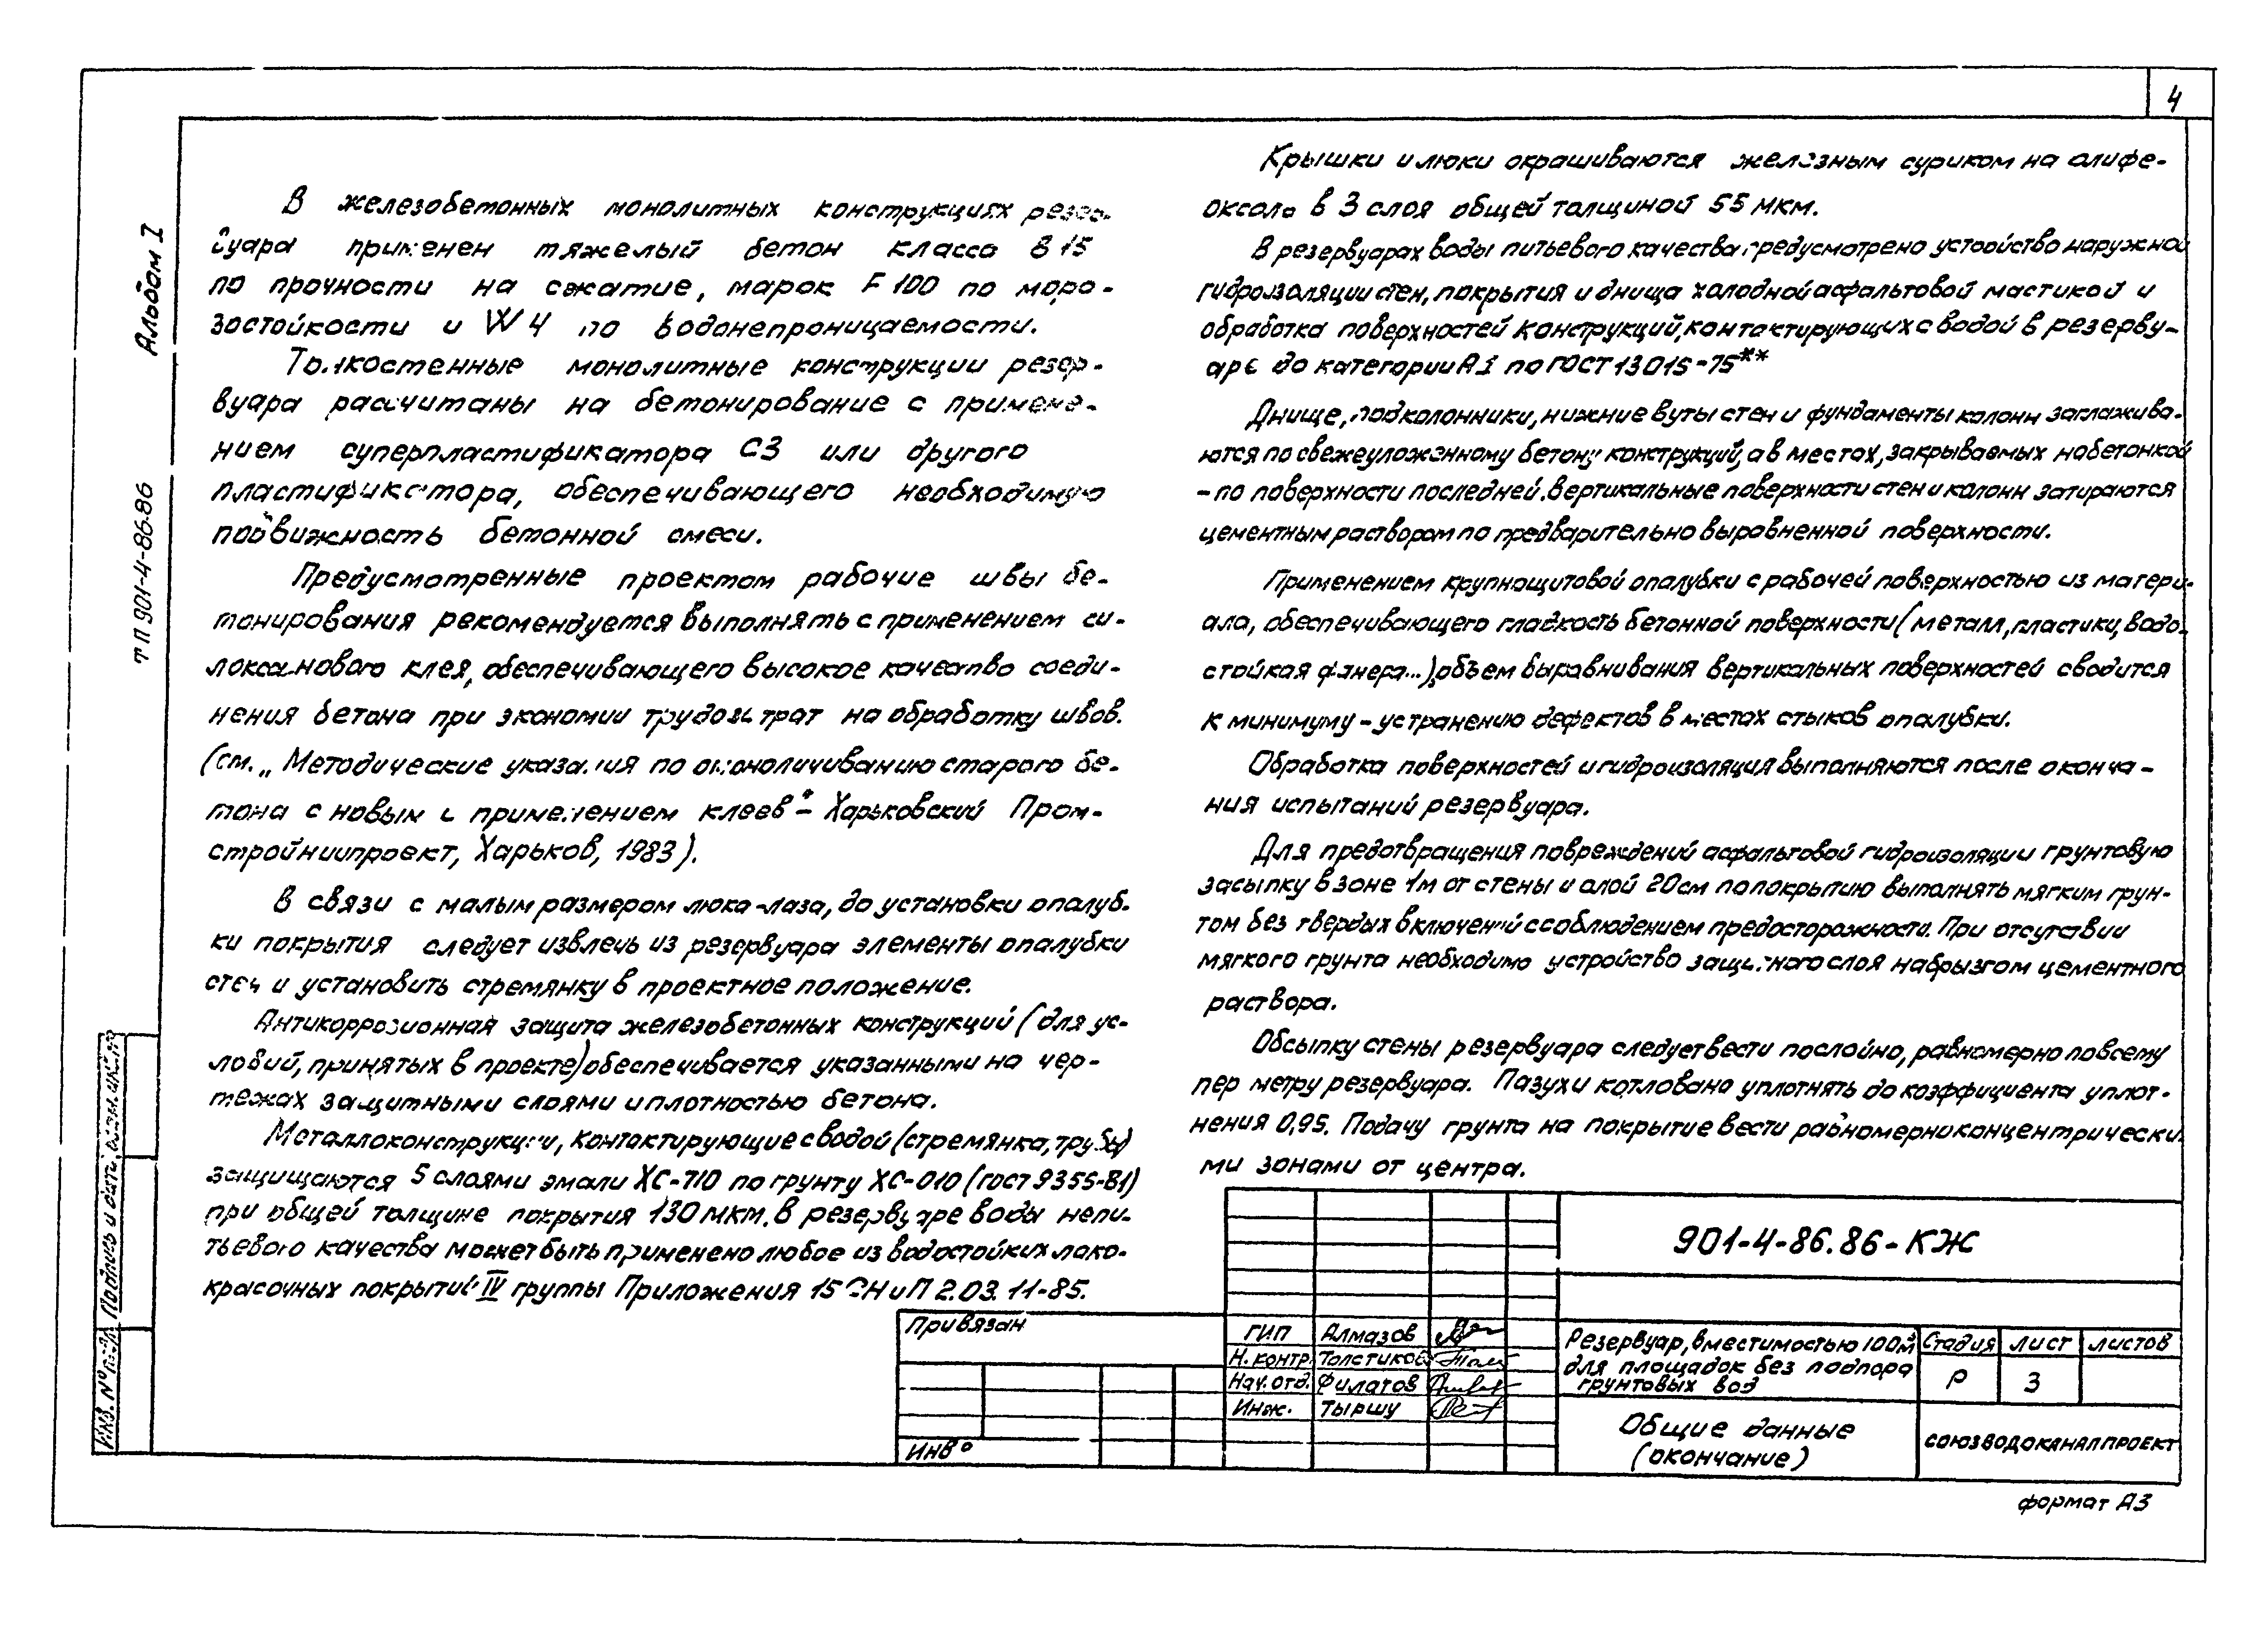 4
Альбом I
ТП 901-4-86.86
В железобетонных монолитных конструкциях резер-
вуара применен тяжелый бетон класса В 15
по прочности на сжатие, марок F 100 по моро-
зостойкости и W 4 по водонепроницаемости.
Тонкостенные монолитные конструкции резер-
вуара рассчитаны на бетонирование с примене-
нием суперпластификатора С3 или другого
пластификатора, обеспечивающего необходимую
подвижность бетонной смеси.
Предусмотренные проектом рабочие швы бе-
тонирования рекомендуется выполнять с применением си-
локсанового клея, обеспечивающего высокое качество соеди-
нения бетона при экономии трудозатрат на обработку швов.
(см. „Методические указания по омоноличиванию старого бе-
тона с новым с применением клеев" - Харьковский Пром-
стройниипроект, Харьков, 1983).
В связи с малым размером люка-лаза, до установки опалуб-
ки покрытия следует извлечь из резервуара элементы опалубки
стен и установить стремянку в проектное положение.
Антикоррозионная защита железобетонных конструкций (для ус-
ловий, принятых в проекте) обеспечивается указанными на чер-
тежах защитными слоями и плотностью бетона.
Металлоконструкции, контактирующие с водой (стремянка, трубы)
защищаются 5 слоями эмали ХС-710 по грунту ХС-010 (ГОСТ 9355-81)
при общей толщине покрытия 130 мкм. В резервуаре воды непи-
тьевого качества может быть применено любое из водостойких лако-
красочных покрытий IV группы Приложения 15 СНиП 2.03.11-85.
Крышки и люки окрашиваются железным суриком на олифе-
оксоль в 3 слоя общей толщиной 55 мкм.
В резервуарах воды питьевого качества предусмотрено устройство наружной
гидроизоляции стен, покрытия и днища холодной асфальтовой мастикой и
обработка поверхностей конструкций, контактирующих с водой в резерву-
аре до категории А I по ГОСТ 13015-75**
Днище, подколонники, нижние вуты стен и фундаменты колонн заглажива-
ются по свежеуложенному бетону конструкций, а в местах, закрываемых набетонкой
- по поверхности последней. Вертикальные поверхности стен и колонн затираются
цементным раствором по предварительно выравненной поверхности.
Применением крупнощитовой опалубки с рабочей поверхностью из матери-
ала, обеспечивающего гладкость бетонной поверхности (металл, пластики, водо-
стойкая фанера...), объем выравнивания вертикальных поверхностей сводится
к минимуму - устранению дефектов в местах стыков опалубки.
Обработка поверхностей и гидроизоляция выполняются после оконча-
ния испытаний резервуара.
Для предотвращения повреждений асфальтовой гидроизоляции грунтовую
засыпку в зоне 1м от стены и слой 20см по покрытию выполнять мягким грун-
том без твердых включений с соблюдением предосторожности. При отсутствии
мягкого грунта необходимо устройство защитного слоя набрызгом цементного
раствора.
Обсыпку стены резервуара следует вести послойно, равномерно по всему
периметру резервуара. Пазухи котлована уплотнять до коэффициента уплот-
нения 0,95. Подачу грунта на покрытие вести равномерно концентрически-
ми зонами от центра.
901-4-86.86-КЖ
Привязан
Инв №
ГИП Алмазов
Н. контр. Толстиков
Нач. отд. Филатов
Инж. Тыршу
Резервуар, вместимостью 100м³
для площадок без подпора
грунтовых вод
Стадия лист листов
Р 3
Общие данные
(окончание)
СОЮЗВОДОКАНАЛПРОЕКТ
Инв. № подл. Подпись и дата Взам. инв. №
формат А3